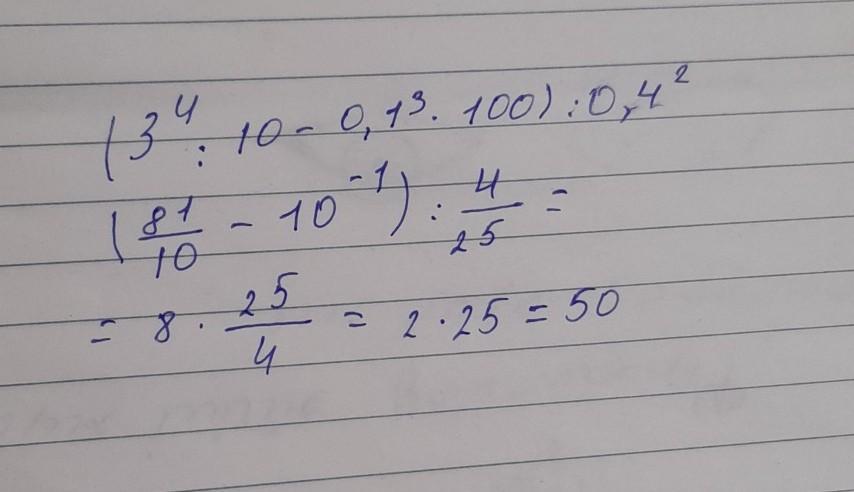 (3⁴ : 10 - 0,1³ · 100) : 0,4²
(81/10 - 10⁻¹) : 4/25 =
= 8 · 25/4 = 2 · 25 = 50